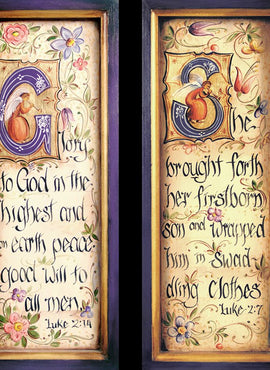 Glory
to God in the
highest and
on earth peace
good will to
all men.
Luke 2:14
She
brought forth
her firstborn
son and wrapped
him in Swad
dling Clothes
Luke 2:7